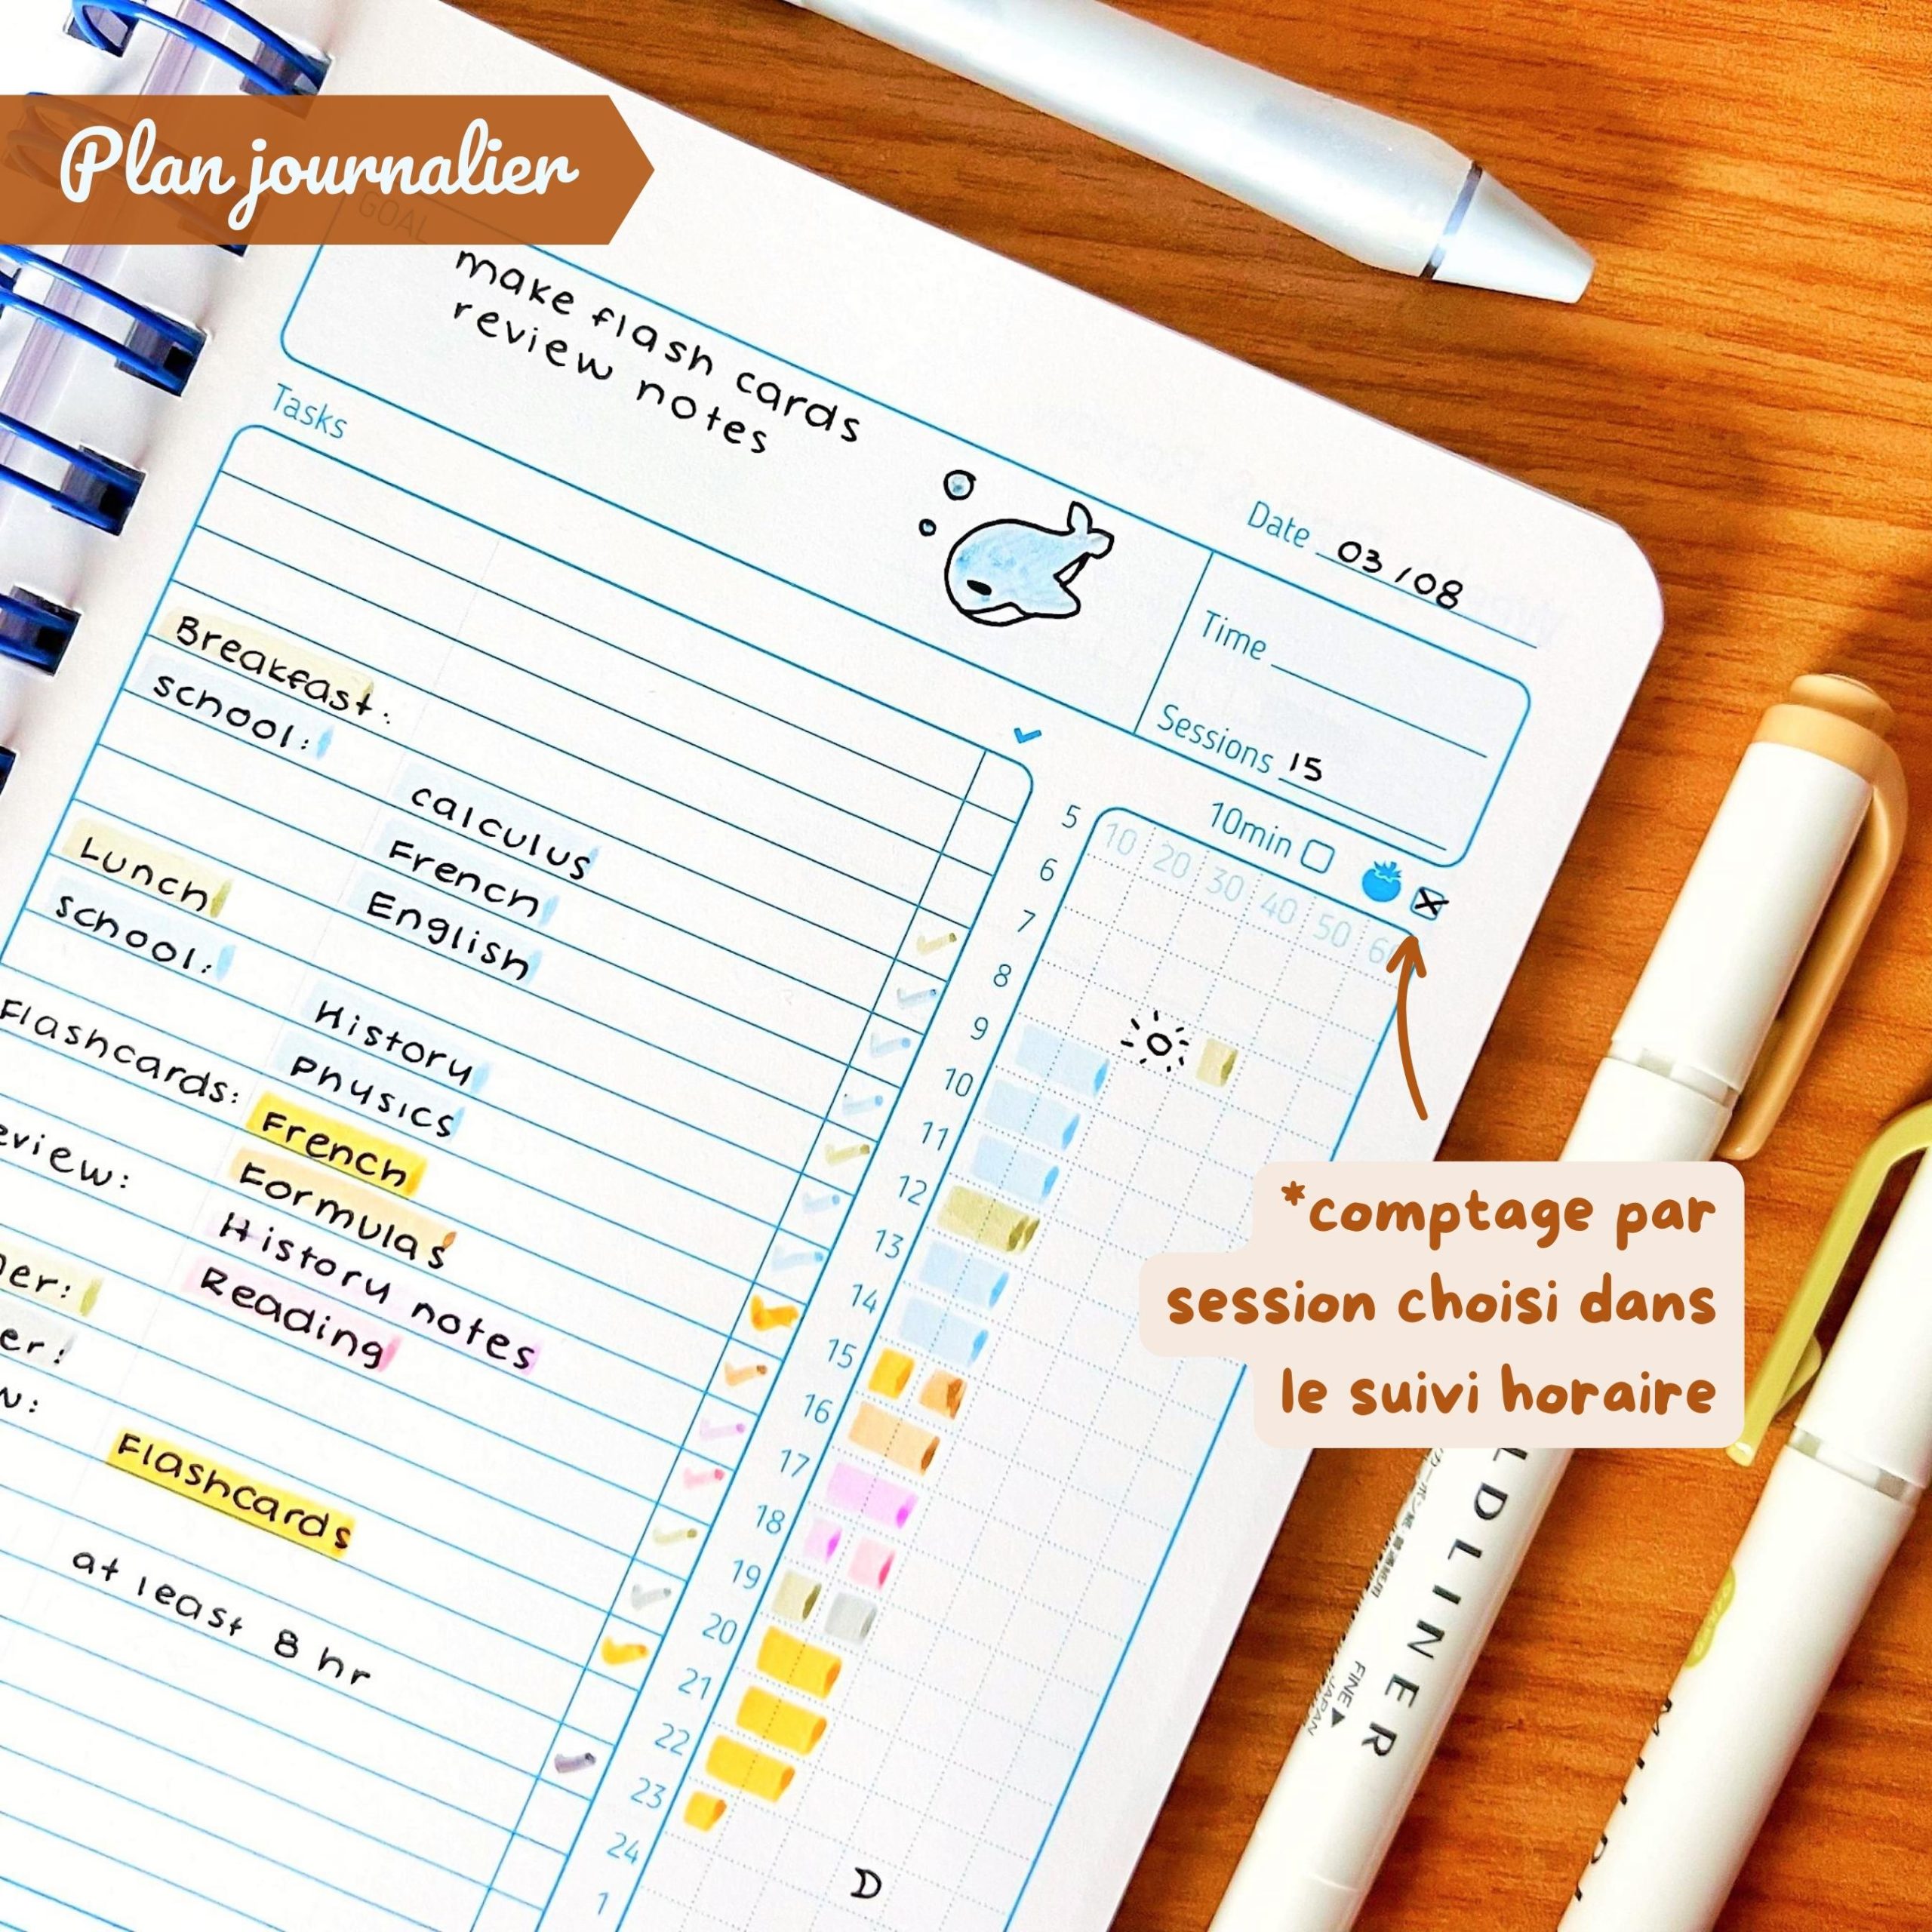 Plan journalier
GOAL
make flash cards
review notes
Date 03/08
Time
Sessions 15
10min
Tasks
10 20 30 40 50 60
Breakfast.
school: calculus
French
English
Lunch
school: History
Physics
Flashcards: French
Formulas
History notes
Reading
Flashcards
at least 8 hr
5
6
7
8
9
10
11
12
13
14
15
16
17
18
19
20
21
22
23
24
1
*comptage par
session choisi dans
le suivi horaire
MILDLINER
FINE
JAPAN